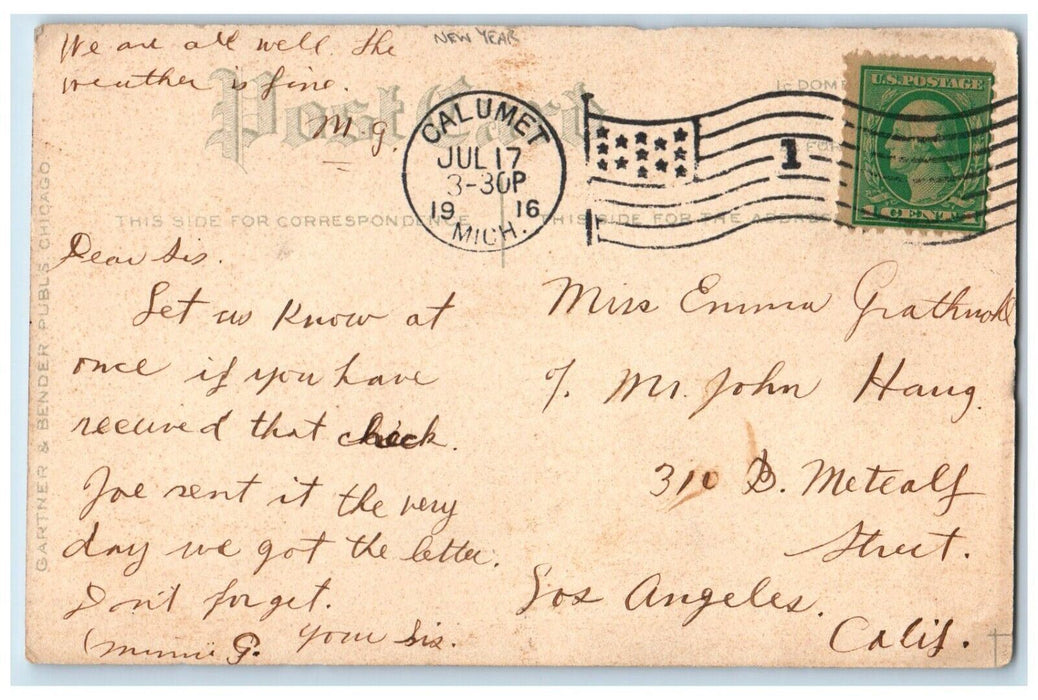 We are all well. The
weather is fine.
M. G.
NEW YEAR
Post Card
CALUMET
JUL 17
3-30P
19 16
MICH.
1
U.S. POSTAGE
1 CENT 1
THIS SIDE FOR CORRESPONDENCE
THIS SIDE FOR THE ADDRESS
GARTNER & BENDER PUBLS. CHICAGO
Dear Sis.
Let us know at
once if you have
received that check.
Joe sent it the very
day we got the letter.
Don't forget.
Your Sis.
(Minnie G.
Miss Emma Grathwohl
℅ Mr. John Haug.
310 B. Metcalf
Street.
Los Angeles.
Calif.